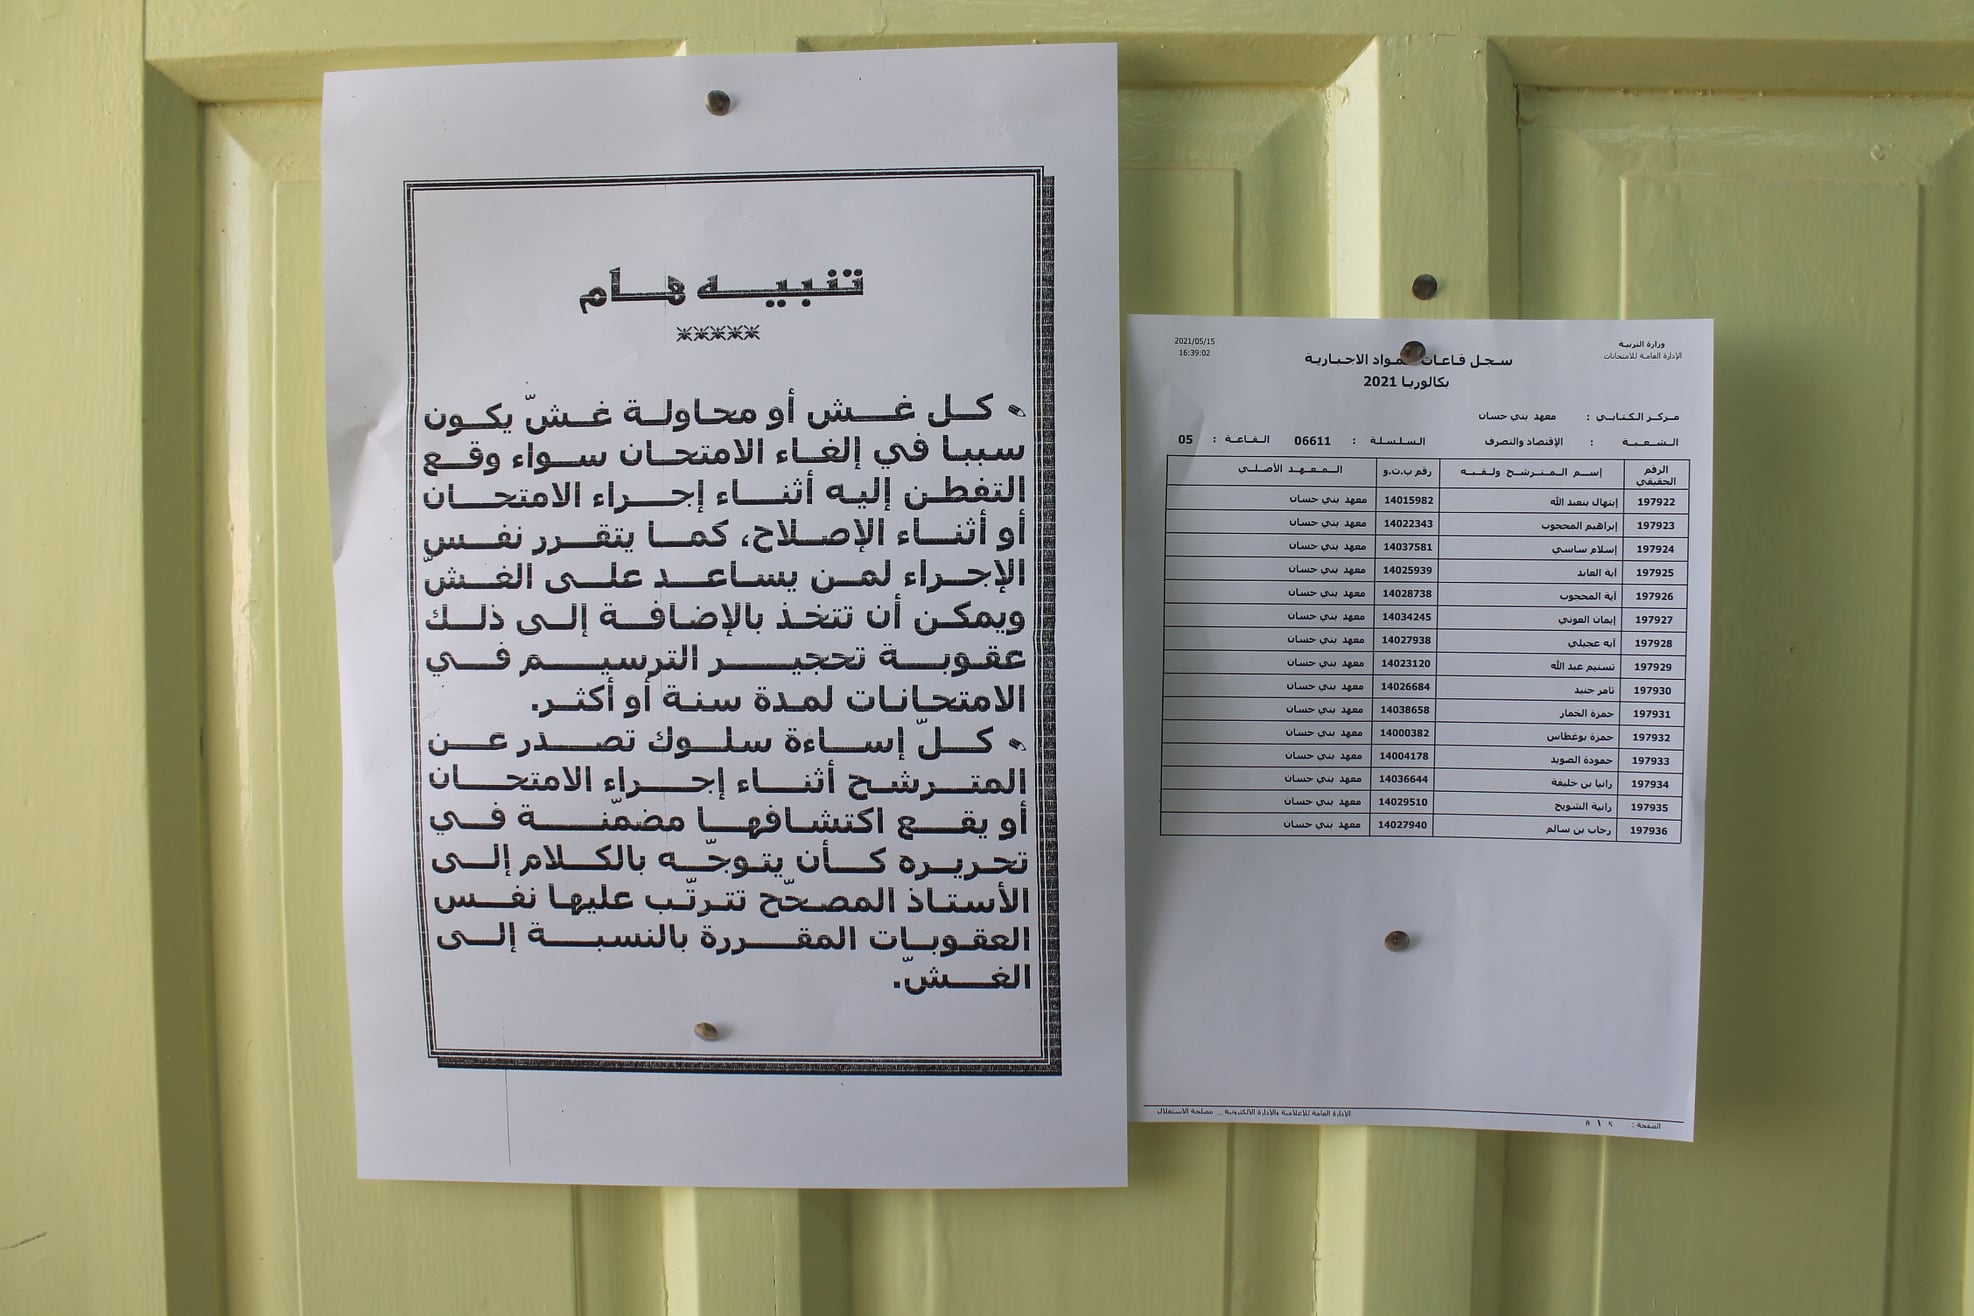 تنبيه هام
*****
كل غش أو محاولة غشّ يكون
سببا في إلغاء الامتحان سواء وقع
التفطن إليه أثناء إجراء الامتحان
أو أثناء الإصلاح، كما يتقرر نفس
الإجراء لمن يساعد على الغشّ
ويمكن أن تتخذ بالإضافة إلى ذلك
عقوبة تحجير الترسيم في
الامتحانات لمدة سنة أو أكثر.
كلّ إساءة سلوك تصدر عن
المترشح أثناء إجراء الامتحان
أو يقع اكتشافها مضمّنة في
تحريره كأن يتوجّه بالكلام إلى
الأستاذ المصحّح تترتّب عليها نفس
العقوبات المقررة بالنسبة إلى
الغشّ.
وزارة التربية
الإدارة العامة للامتحانات
2021/05/15
16:39:02
سجل قاعات المواد الاجبارية
بكالوريا 2021
مركز الكتابي : معهد بني حسان
الشعبة : الإقتصاد والتصرف السلسلة : 06611 القاعة : 05
الرقم الحقيقي إسم المترشح ولقبه رقم ب.ت.و المعهد الأصلي
197922 إبتهال بنعبد الله 14015982 معهد بني حسان
197923 إبراهيم المحجوب 14022343 معهد بني حسان
197924 إسلام ساسي 14037581 معهد بني حسان
197925 آية العابد 14025939 معهد بني حسان
197926 آية المحجوب 14028738 معهد بني حسان
197927 إيمان العوني 14034245 معهد بني حسان
197928 آيه عجيلي 14027938 معهد بني حسان
197929 تسنيم عبد الله 14023120 معهد بني حسان
197930 ثامر جنيد 14026684 معهد بني حسان
197931 حمزة الخمار 14038658 معهد بني حسان
197932 حمزة بوغطاس 14000382 معهد بني حسان
197933 حمودة الصويد 14004178 معهد بني حسان
197934 رانيا بن خليفة 14036644 معهد بني حسان
197935 رانية الشويخ 14029510 معهد بني حسان
197936 رحاب بن سالم 14027940 معهد بني حسان
الادارة العامة للإعلامية والادارة الالكترونية _ مصلحة الاستغلال
الصفحة :